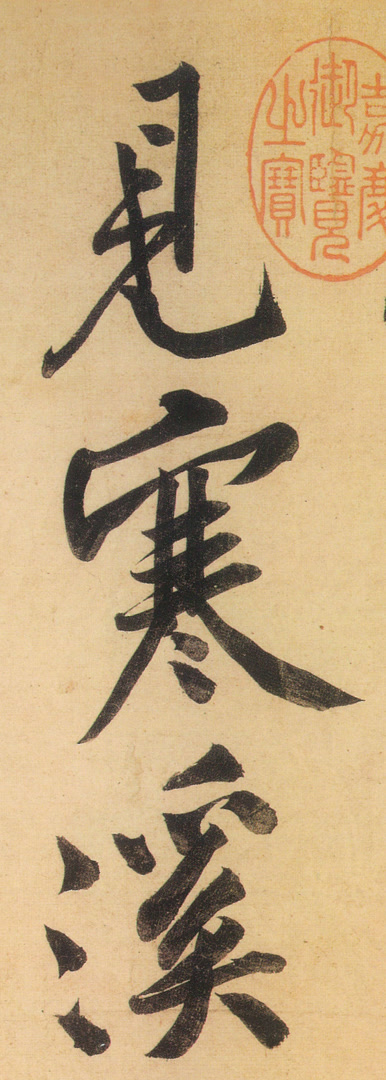 見寒溪
嘉慶御覽之寶